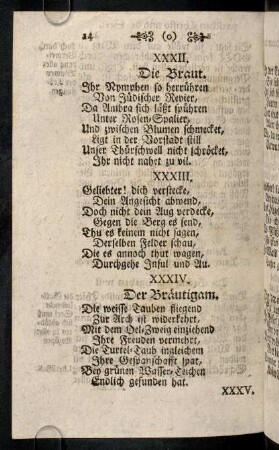 24 (o)
XXXII.
Die Braut.
Ihr Nymphen so herrühren
Von Jüdischer Revier,
Da Ambra sich läßt spühren
Unter Rosen-Spalier,
Und zwischen Blumen schmecket,
Ligt in der Vorstadt still
Unser Thürschwell nicht schröcket,
Ihr nicht nahet zu vil.
XXXIII.
Geliebter! dich verstecke,
Dein Angesicht abwend,
Doch nicht dein Aug verdecke,
Gegen die Berg es send,
Thu es keinem nicht sagen,
Derselben Felder schau,
Die es annoch thut wagen,
Durchgehe Insul und Au.
XXXIV.
Der Bräutigam.
Die weisse Tauben fliegend
Zur Arch ist widerkehrt,
Mit dem Oel-Zweig einziehend
Ihre Freuden vermehrt,
Die Turtel-Taub ingleichem
Ihre Gespanschafft spat,
Bey grünen Wasser-Teichen
Endlich gefunden hat.
XXXV.